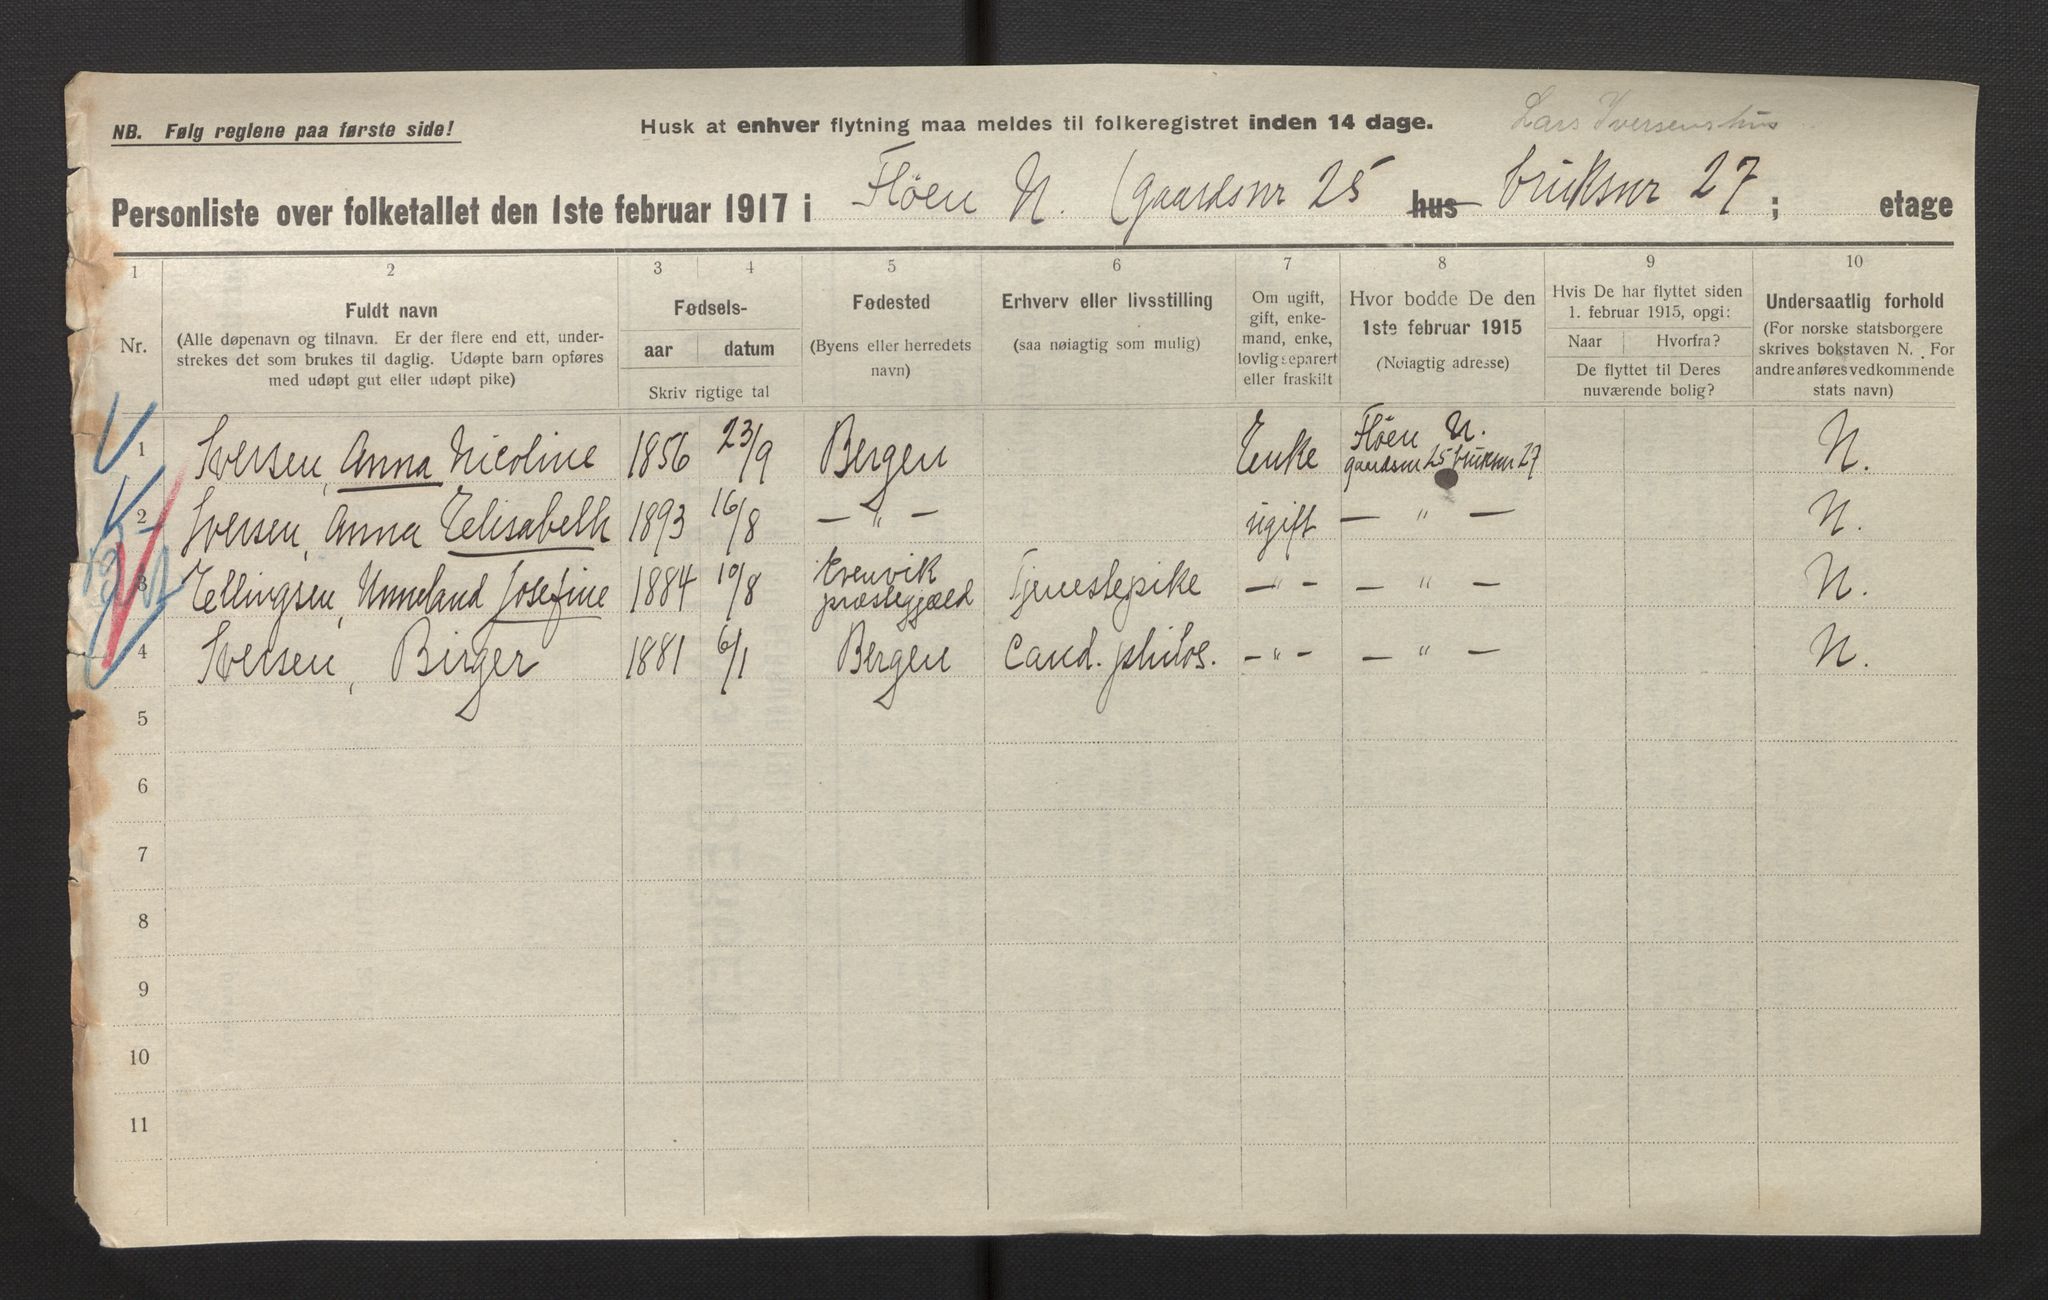 NB. Følg reglene paa første side!
Husk at enhver flytning maa meldes til folkeregistret inden 14 dage.
Lars Iversens hus
Personliste over folketallet den 1ste februar 1917 i Fløen N. (gaardsnr 25 hus bruksnr 27 ; etage
1 2 3 4 5 6 7 8 9 10
Nr.
Fuldt navn
(Alle døpenavn og tilnavn. Er der flere end ett, under-
strekes det som brukes til daglig. Udøpte barn opføres
med udøpt gut eller udøpt pike)
Fødsels-
aar datum
Skriv rigtige tal
Fødested
(Byens eller herredets
navn)
Erhverv eller livsstilling
(saa nøiagtig som mulig)
Om ugift,
gift, enke-
mand, enke,
lovlig separert
eller fraskilt
Hvor bodde De den
1ste februar 1915
(Nøiagtig adresse)
Hvis De har flyttet siden
1. februar 1915, opgi:
Naar Hvorfra?
De flyttet til Deres
nuværende bolig?
Undersaatlig forhold
(For norske statsborgere
skrives bokstaven N. For
andre anføres vedkommende
stats navn)
1 Iversen, Anna Nicoline 1856 23/9 Bergen Enke Fløen N. gaardsnr 25 bruksnr 27 N.
2 Iversen, Anna Elisabeth 1893 16/8 — " — ugift — " — N.
3 Ellingsen, Unneland Josefine 1884 10/8 Evenvik præstegjæld Tjenestepike — " — — " — N.
4 Iversen, Birger 1881 6/1 Bergen Cand. philos. — " — — " — N.
5
6
7
8
9
10
11